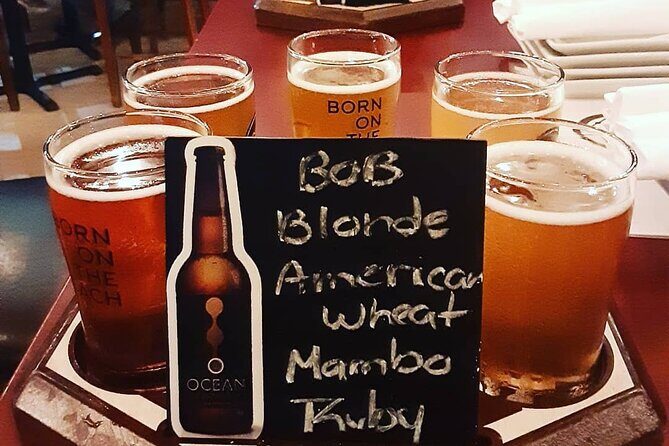 BORN
ON
THE
BORN
ON
THE
ACH
BOB
Blonde
American
Wheat
Mambo
Ruby
OCEAN